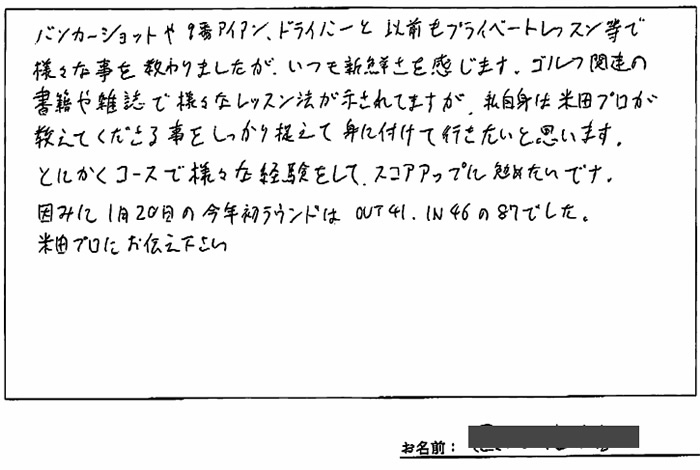 バンカーショットや9番アイアン、ドライバーと以前もプライベートレッスン等で
様々な事を教わりましたが、いつも新鮮さを感じます。ゴルフ関連の
書籍や雑誌で様々なレッスン法が示されてますが、私自身は米田プロが
教えてくださる事をしっかり捉えて身に付けて行きたいと思います。
とにかくコースで様々な経験をして、スコアアップに勉めたいです。
因みに1月20日の今年初ラウンドはOUT41.IN46の87でした。
米田プロにお伝え下さい
お名前：